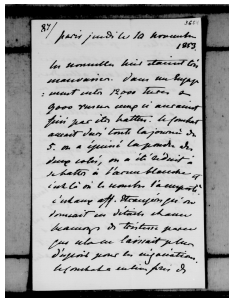 87/
paris jeudi le 10 novembre
1853.
les nouvelles hier étaient très
mauvaises. dans un engage
:ment entre 12,000 turcs &
9000 russes ceux ci auraient
fini par être battus. le combat
aurait duré toute la journée du
5. on a épuisé la poudre des
deux cotés, on a été réduit à
se battre à l'arme blanche et
c'est là où le nombre l'a emporté.
aux aff. étrangères, où on
donnait ces détails on avait
beaucoup de tristesse parce
que cela ne laissait plus
d'espoir pour les négociations.
le combat a eu lieu près de